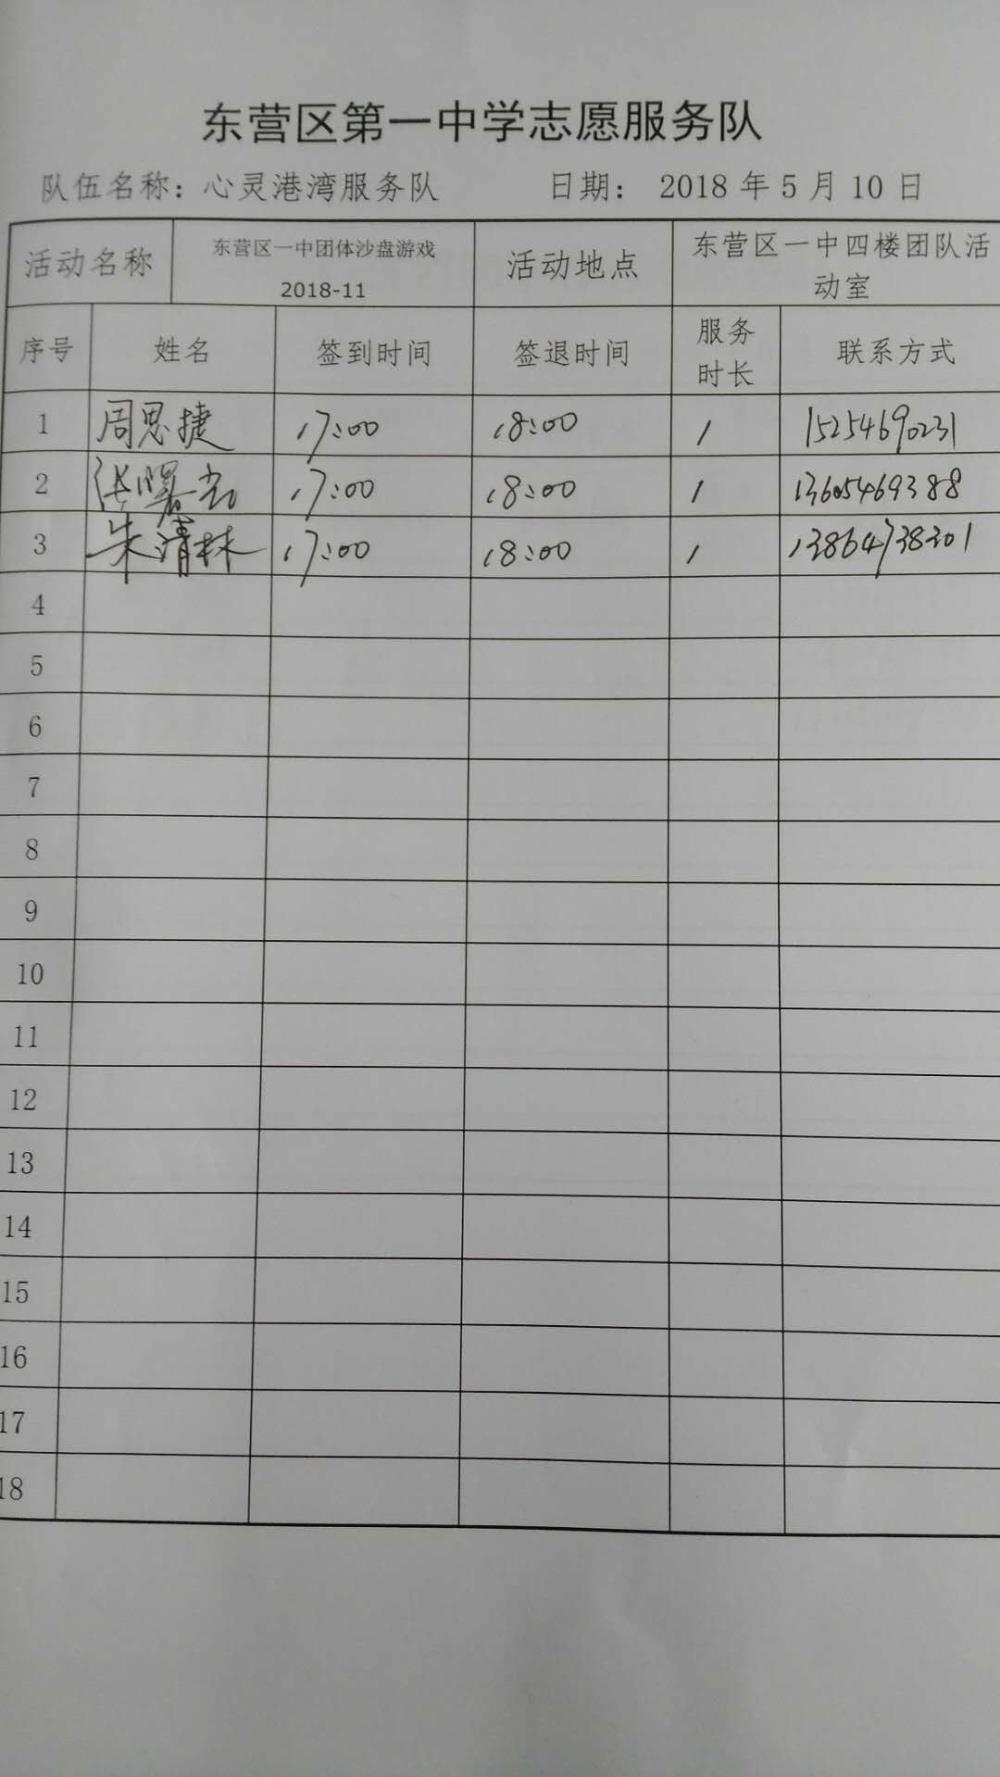 东营区第一中学志愿服务队
队伍名称：心灵港湾服务队 日期： 2018 年 5 月 10 日
活动名称 东营区一中团体沙盘游戏 2018-11 活动地点 东营区一中四楼团队活动室
序号 姓名 签到时间 签退时间 服务时长 联系方式
1 周思捷 17:00 18:00 1 15254690231
2 张曙光 17:00 18:00 1 13605469388
3 朱清林 17:00 18:00 1 13864738301
4
5
6
7
8
9
10
11
12
13
14
15
16
17
18